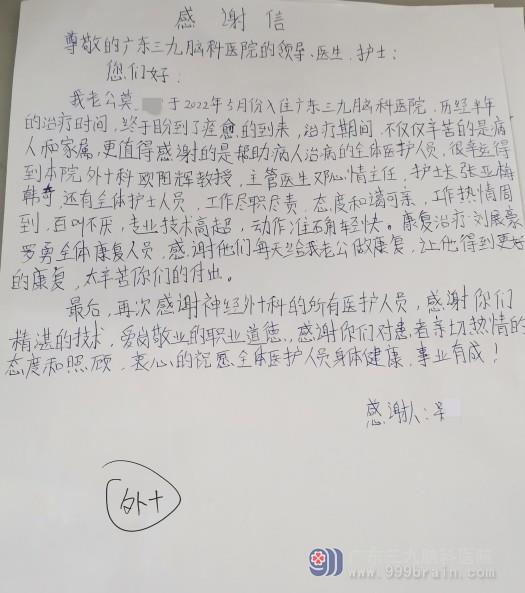 感谢信
尊敬的广东三九脑科医院的领导、医生、护士:
您们好:
我老公莫 于2022年5月份入住广东三九脑科医院,历经半年
的治疗时间,终于盼到了痊愈的到来,治疗期间,不仅仅辛苦的是病
人和家属,更值得感谢的是帮助病人治病的全体医护人员,很幸运得
到本院外十科欧阳辉教授,主管医生邓心情主任,护士长张亚梅
韩奇,还有全体护士人员,工作尽职尽责,态度和谒可亲,工作热情周
到,百叫不厌,专业技术高超,动作准确轻快。康复治疗刘展豪
罗勇全体康复人员,感谢他们每天给我老公做康复,让他得到更好
的康复,太辛苦你们的付出。
最后,再次感谢神经外十科的所有医护人员,感谢你们
精湛的技术,爱岗敬业的职业道德,感谢你们对患者亲切热情的
态度和照顾,衷心的祝愿全体医护人员身体健康,事业有成!
感谢人:
外十
广东三九脑科医院
www.999brain.com